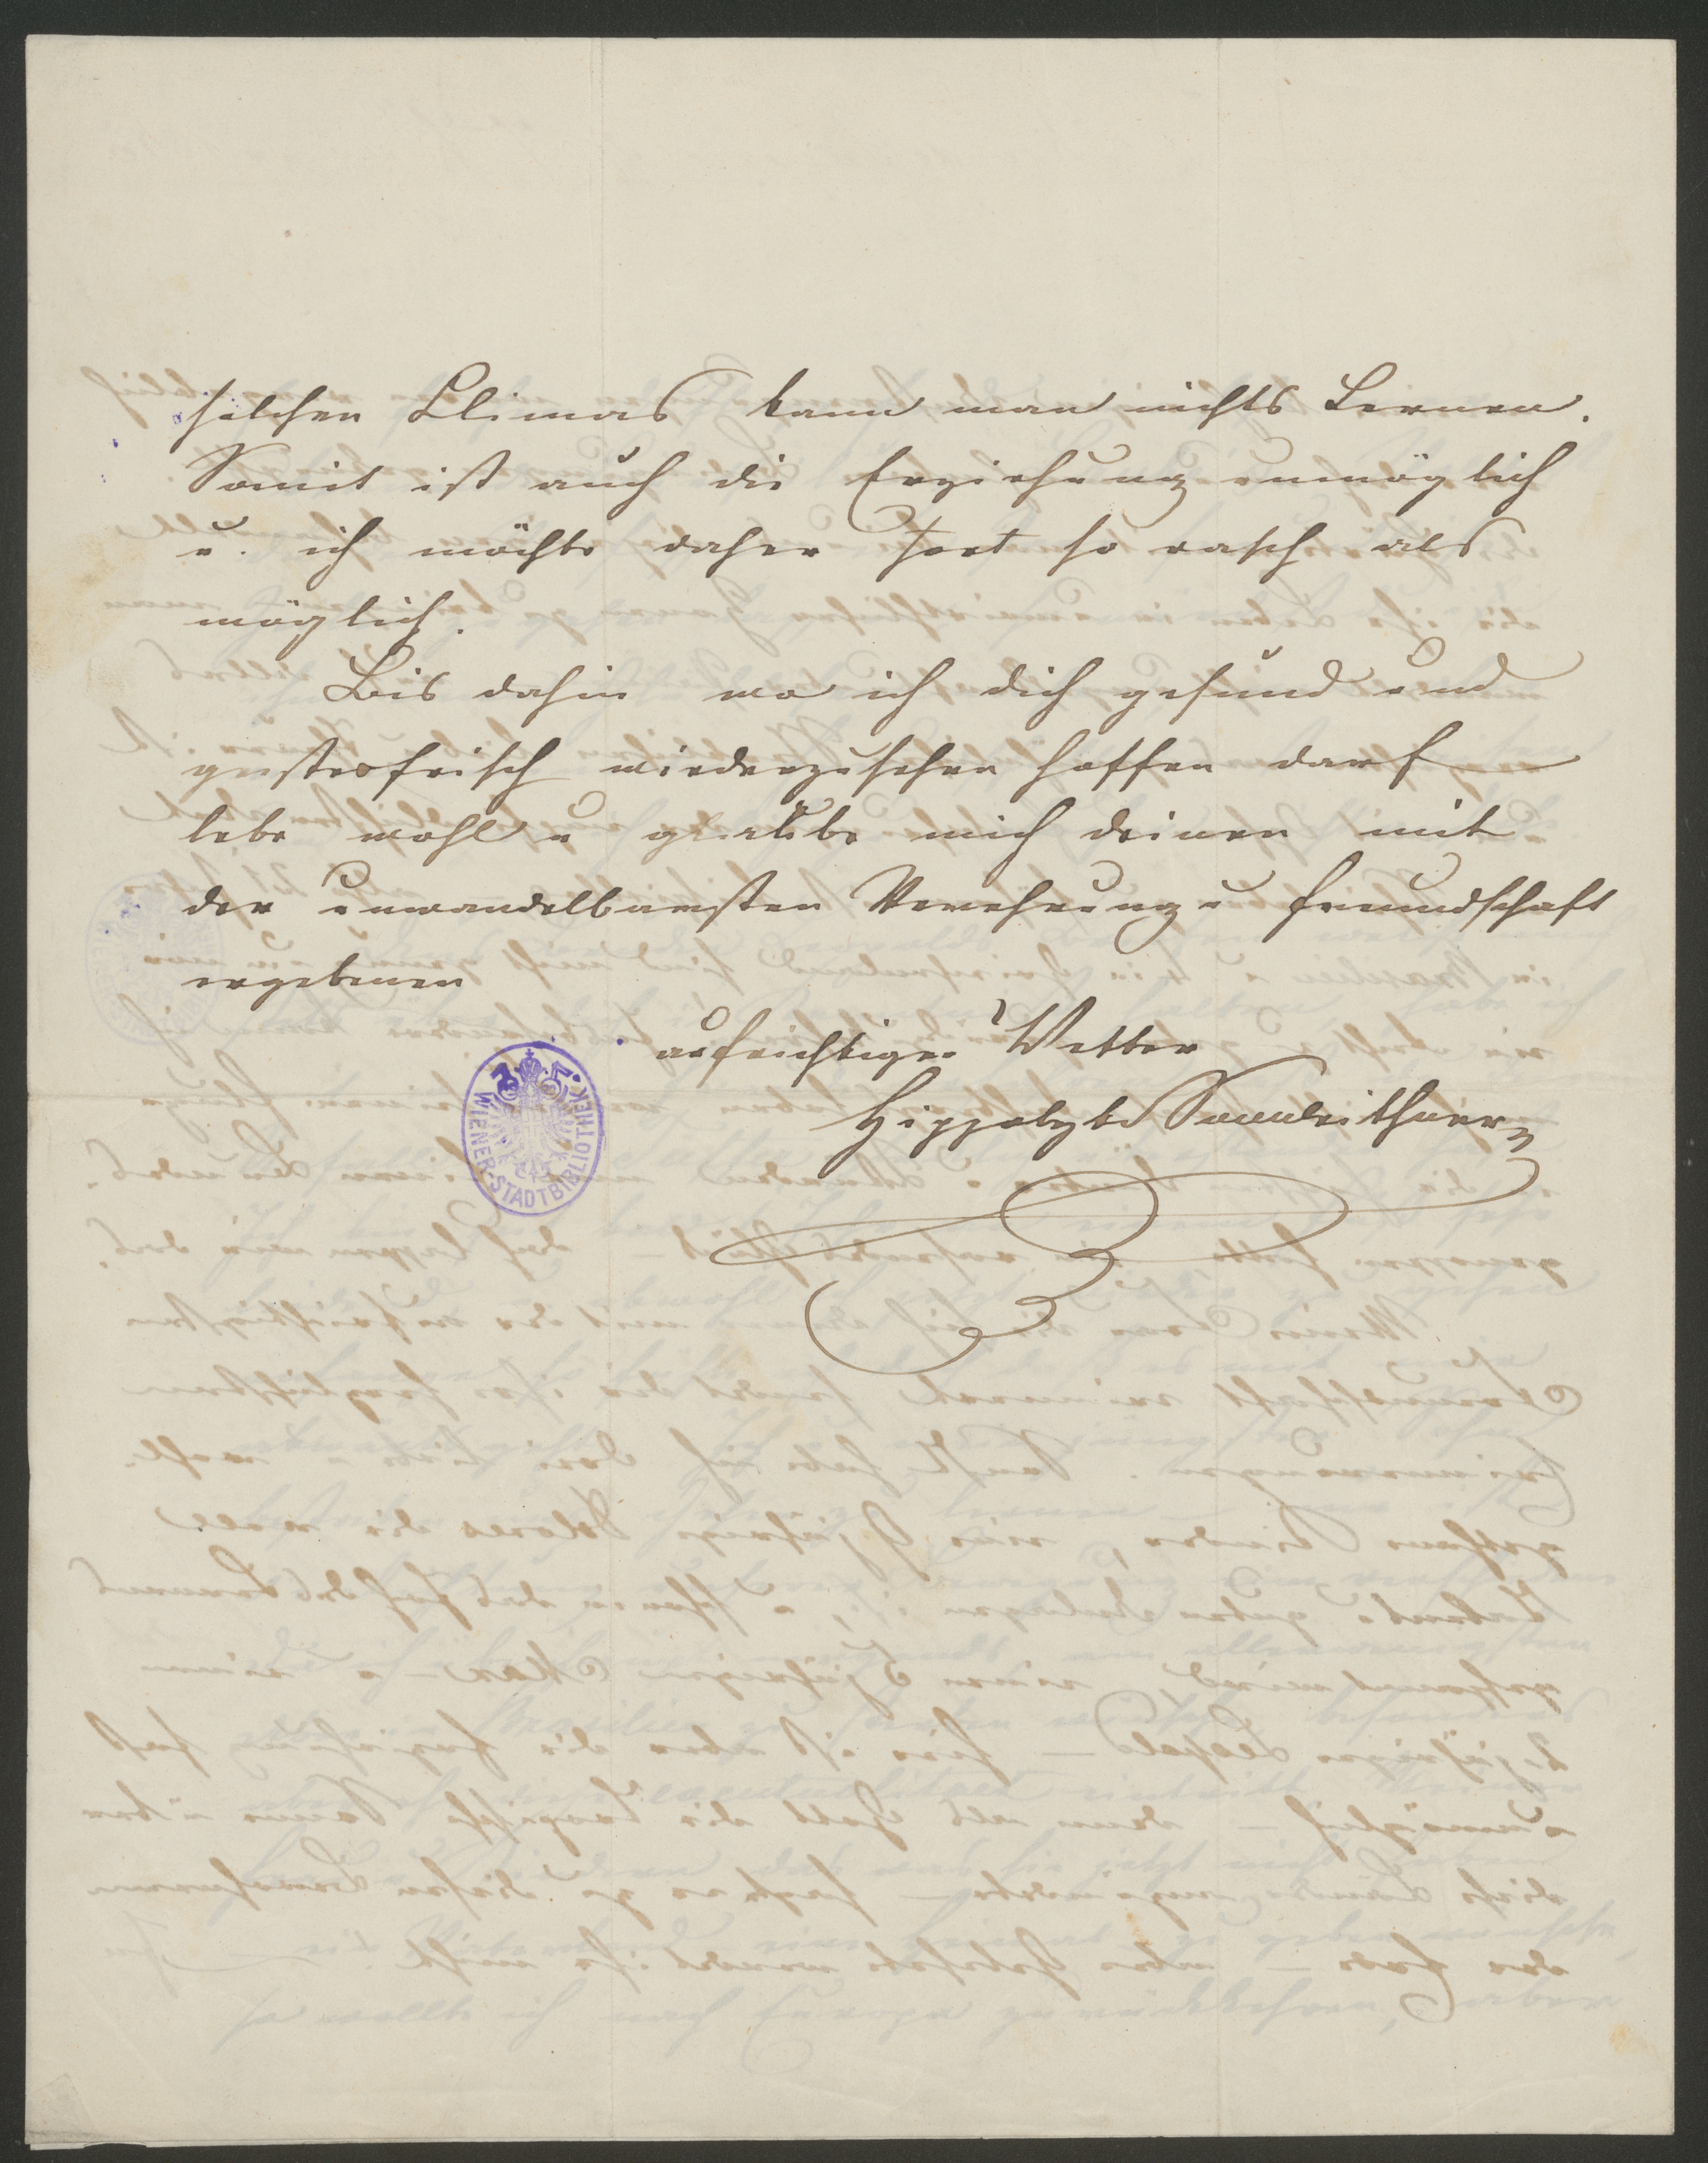 solchen Climas kann man nichts Lernen.
Somit ist auch die Erziehung unmöglich
u. ich möchte daher fort so rasch als
möglich.
Bis dahin wo ich dich gesund und
geistesfrisch wiederzusehen hoffen darf
lebe wohl u glaube mich deinen mit
der unwandelbarsten Verehrung u Freundschaft
ergebenen
aufrichtigen Vetter
Hippolyt Sonnleithner
WIENER-STADTBIBLIOTHEK